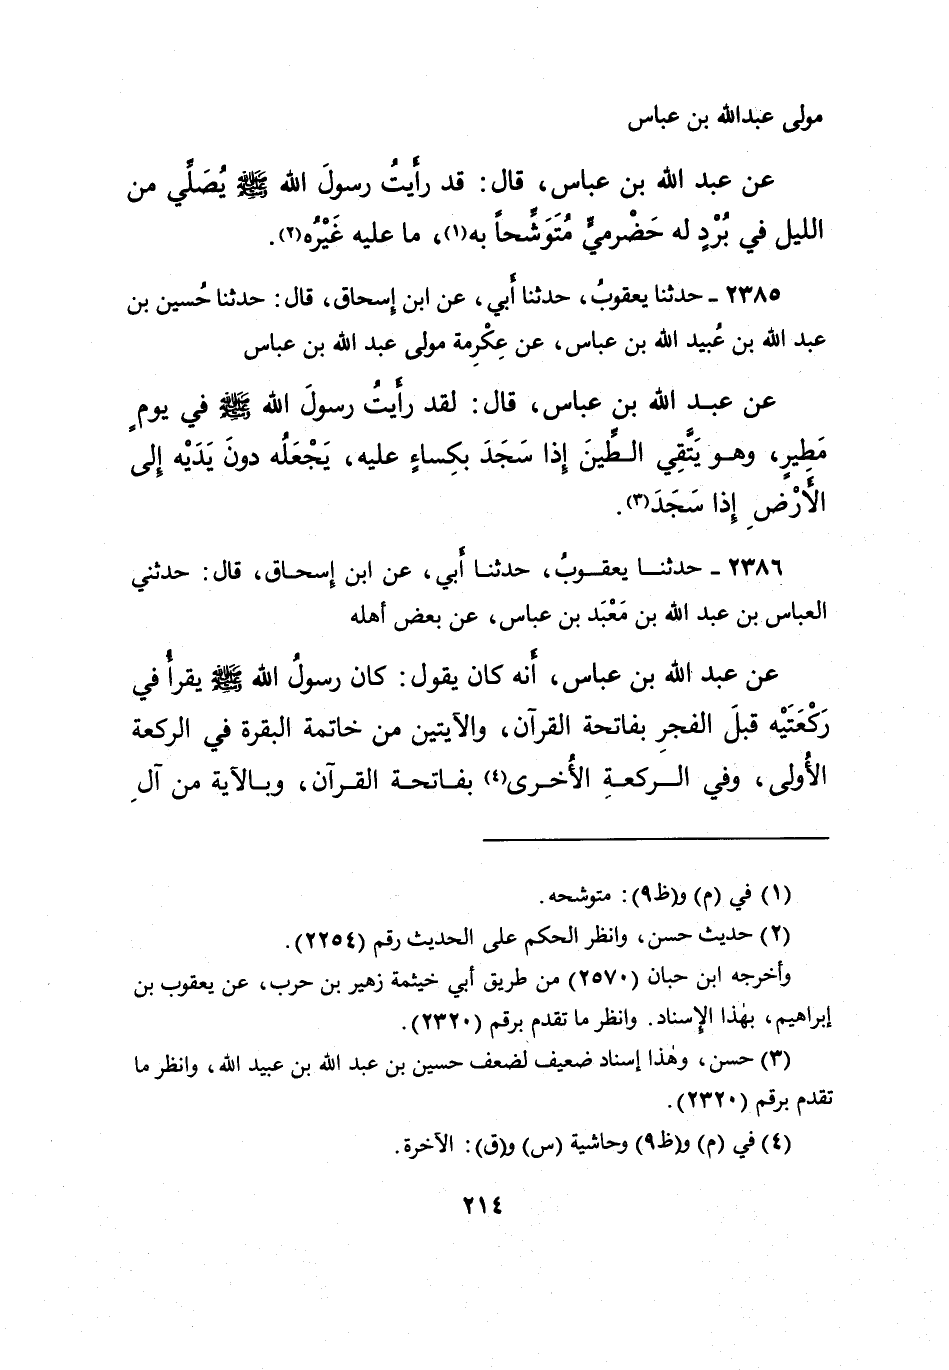 مولى عبدالله بن عباس
عن عبد الله بن عباس، قال: قد رأَيتُ رسولَ الله ﷺ يُصَلَّي من
الليل في بُرْدٍ له حَضْرميٍّ مُتَوَشِّحاً به(١)، ما عليه غَيْرُه(٢).
٢٣٨٥ ـ حدثنا يعقوبُ، حدثنا أَبي، عن ابن إِسحاق، قال: حدثنا حُسين بن
عبد الله بن عُبيد الله بن عباس، عن عِكْرِمة مولى عبد الله بن عباس
عن عبد الله بن عباس، قال: لقد رأَيتُ رسولَ الله ﷺ في يومٍ
مَطِيرٍ، وهو يَتَّقِي الطِّينَ إِذا سَجَدَ بكِساءٍ عليه، يَجْعَلُه دونَ يَدَيْه إِلى
الأَرْضِ إِذا سَجَدَ(٣).
٢٣٨٦ ـ حدثنا يعقوبُ، حدثنا أَبي، عن ابن إسحاق، قال: حدثني
العباس بن عبد الله بن مَعْبَد بن عباس، عن بعض أهله
عن عبد الله بن عباس، أَنه كان يقول: كان رسولُ الله ﷺ يقرأُ في
رَكْعَتَيْه قبلَ الفجرِ بفاتحة القرآن، والآيتين من خاتمة البقرة في الركعة
الأُولى، وفي الركعةِ الأُخرى(٤) بفاتحة القرآن، وبالآية من آلِ
(١) في (م) و(ظ٩): متوشحه.
(٢) حديث حسن، وانظر الحكم على الحديث رقم (٢٢٥٤).
وأخرجه ابن حبان (٢٥٧٠) من طريق أبي خيثمة زهير بن حرب، عن يعقوب بن
إبراهيم، بهٰذا الإسناد. وانظر ما تقدم برقم (٢٣٢٠).
(٣) حسن، وهٰذا إسناد ضعيف لضعف حسين بن عبد الله بن عبيد الله، وانظر ما
تقدم برقم (٢٣٢٠).
(٤) في (م) و(ظ٩) وحاشية (س) و(ق): الآخرة.
٢١٤